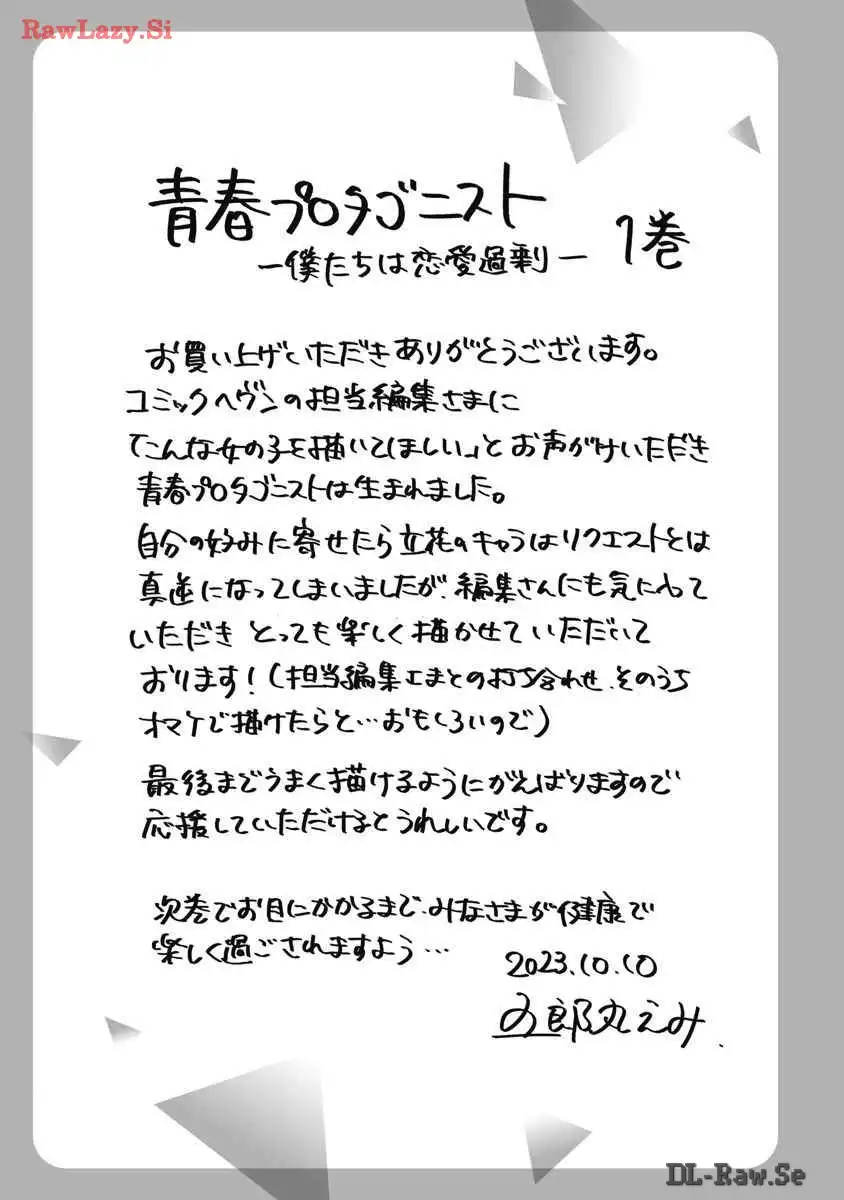 RawLazy.Si
青春プロタゴニスト 1巻
ー僕たちは恋愛過剰ー
お買い上げいただきありがとうございます。
コミックヘヴンの担当編集さまに
「こんな女の子を描いてほしい」とお声がけいただき
青春プロタゴニストは生まれました。
自分の好みに寄せたら立花のキャラはリクエストとは
真逆になってしまいましたが、編集さんにも気に入って
いただき とっても楽しく描かせていただいて
おります!(担当編集Iさまとの打ち合わせ、そのうち
オマケで描けたらと…おもしろいので)
最後までうまく描けるようにがんばりますので
応援していただけるとうれしいです。
次巻でお目にかかるまで、みなさまが健康で
楽しく過ごされますよう…
2023.10.10
五郎丸えみ
DL-Raw.Se